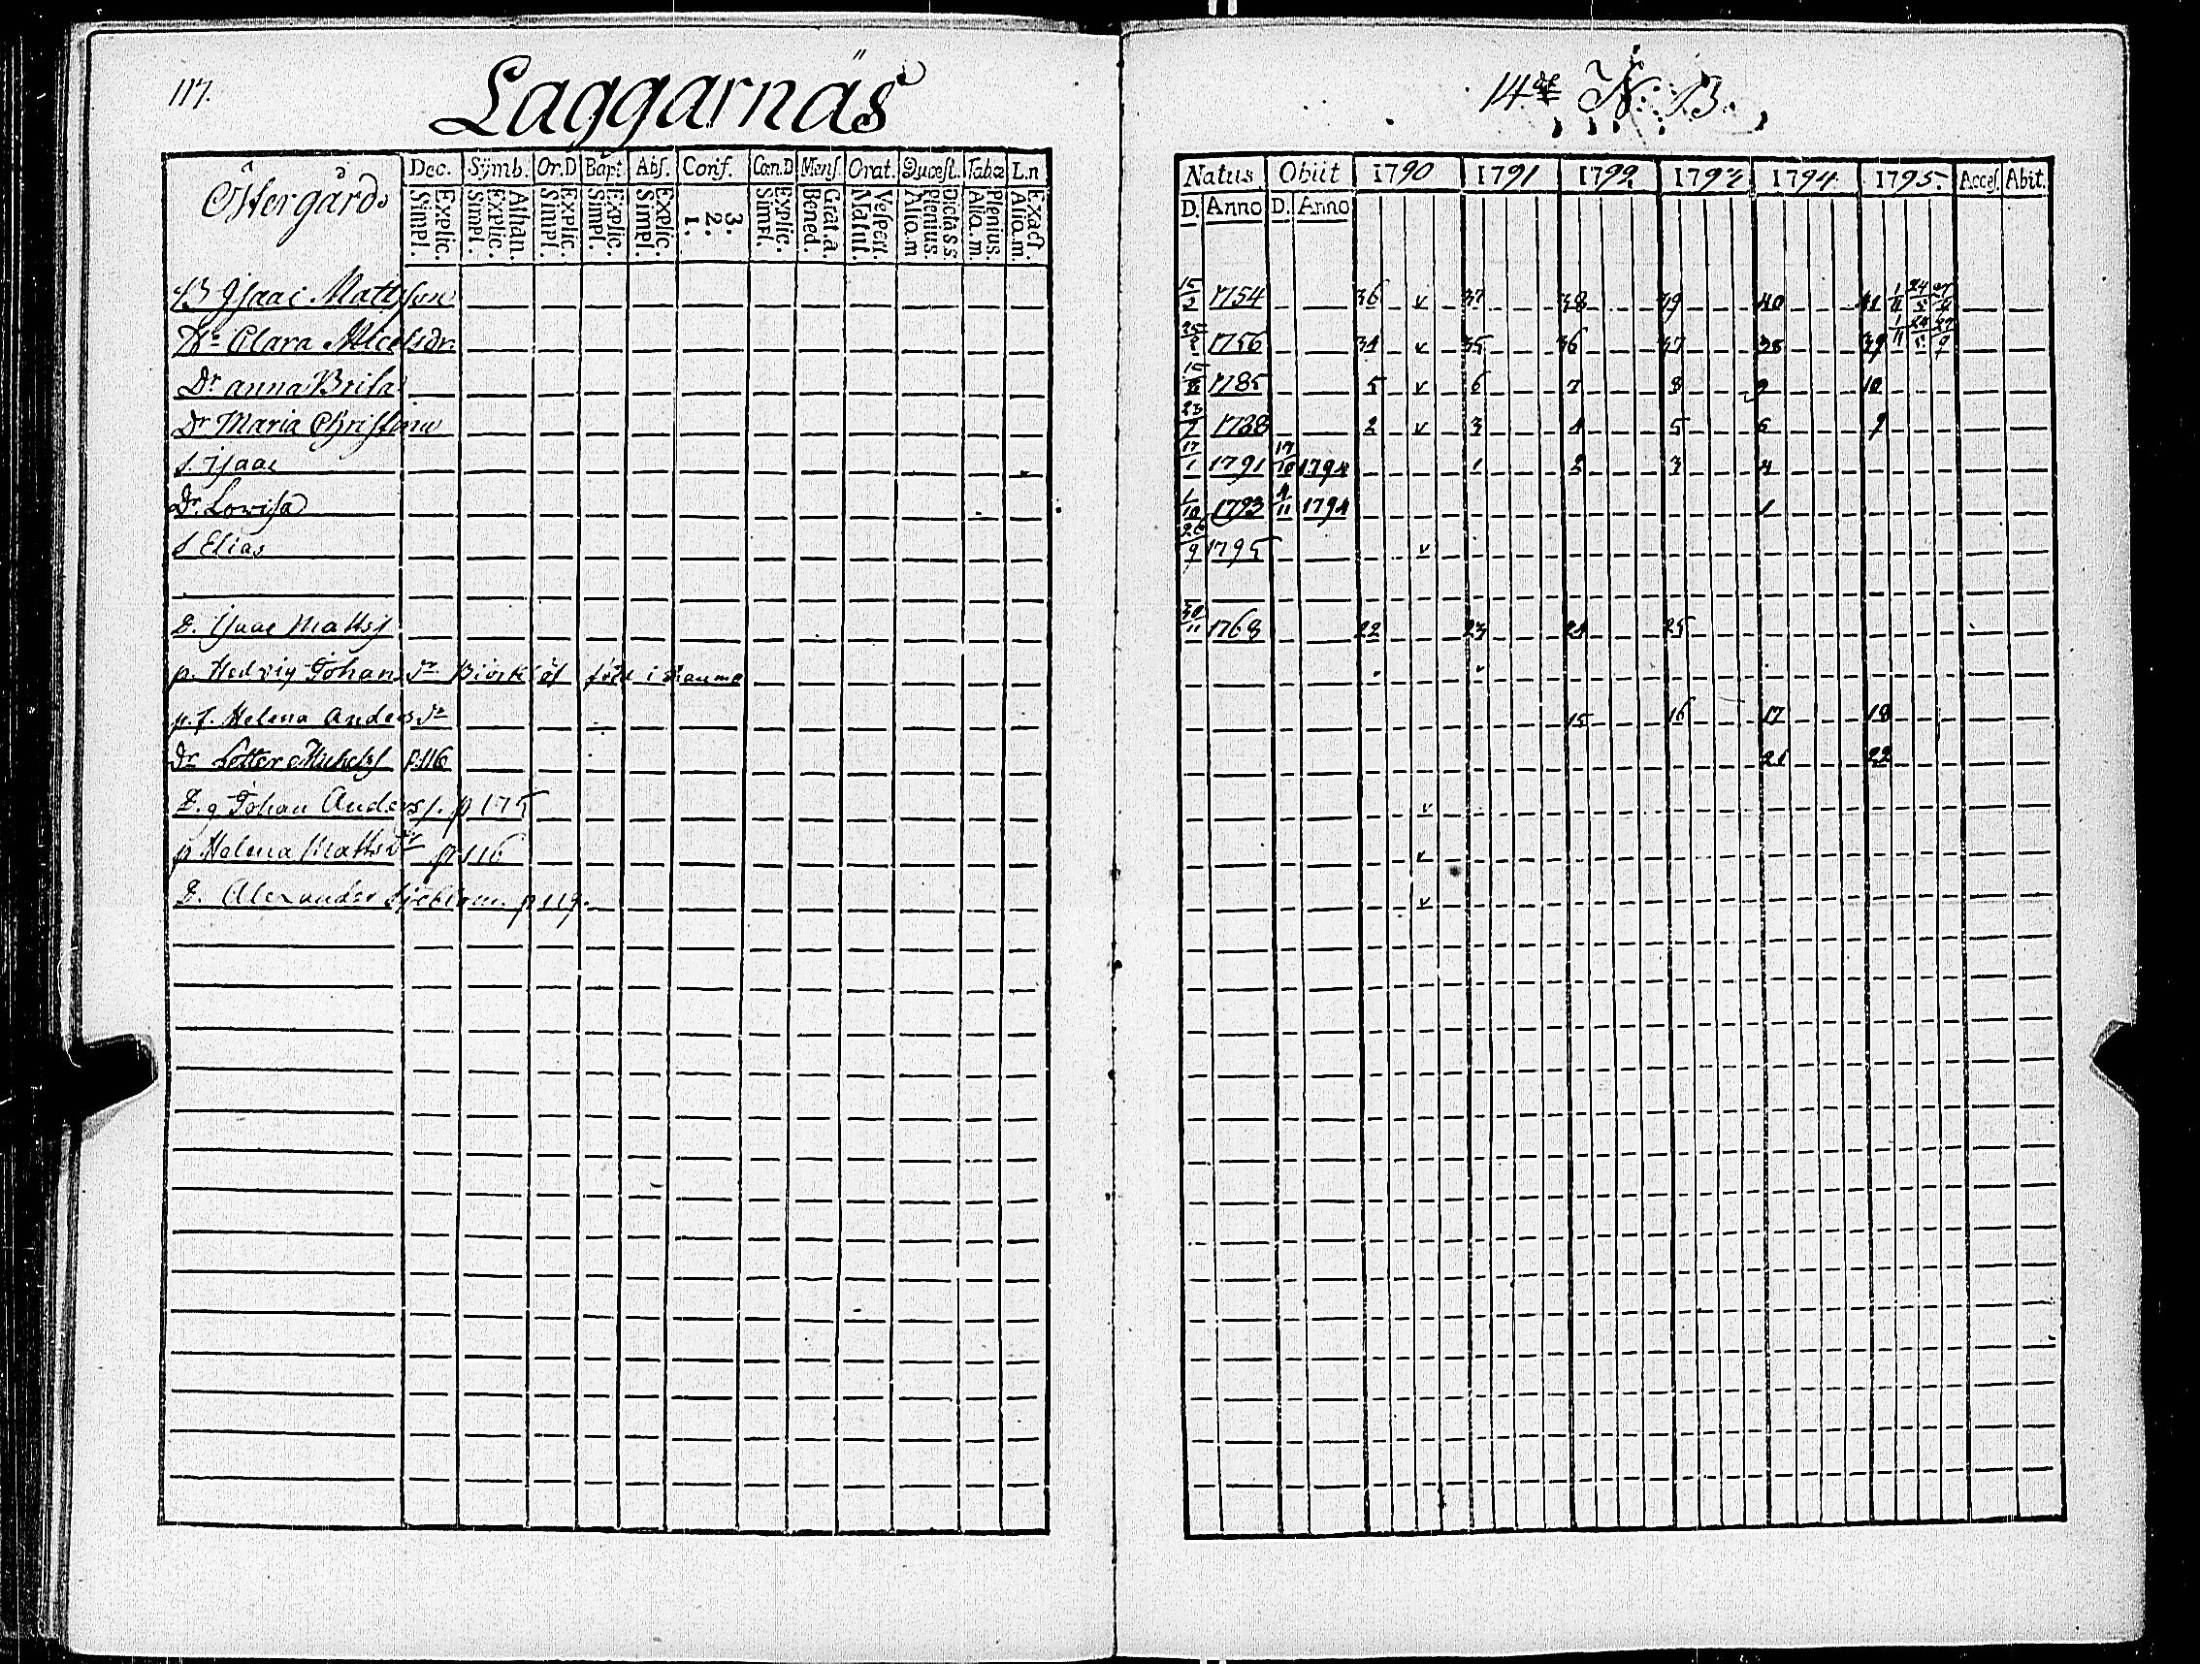 117.
Laggarnäs
Östergårds
Dec. Symb. Or.D Bapt. Abs. Conf. Cœn.D Mens. Orat. Quæst. Tabæ L.n
Explic. Simpl. Athan. Explic. Simpl. Explic. Simpl. Explic. Simpl. Explic. Simpl. 3. 2. 1. Explic. Simpl. Grat.a. Bened. Vespert. Matut. Dicta SS. Plenius. Alio.m Plenius. Alio.m Exact Alio.m.
B Isaac Mattsson
Clara Micelsdr.
Dr anna Brita
Dr Maria Christina
S. Isaac
Dr. Lovisa
S Elias
D. Isaac Matts
p. Hedvig Johans dr Björklöf född i Raumo
p.f. Helena Anders dr
Dr Michels p.116
D.g Johan Anders s. p 175
p Helena Matts dr p 116
D. Alexander p 119.
14 N: 13.
Natus Obiit 1790 1791 1792 1793 1794 1795 Acces. Abit.
D. Anno D. Anno
15/2 1754 36 v 37 38 39 40 41 1/11 24/5 27/9
1756 34 v 35 36 37 38 39 1/11 24/5 27/9
1785 5 v 6 7 8 9 10
23/7 1788 2 v 3 4 5 6 7
17/1 1791 17/10 1794 1 2 3 4
1/10 1793 4/11 1794 1
26/9 1795 v
30/11 1768 22 23 24 25
15 16 17 18
21 22
v
v
v